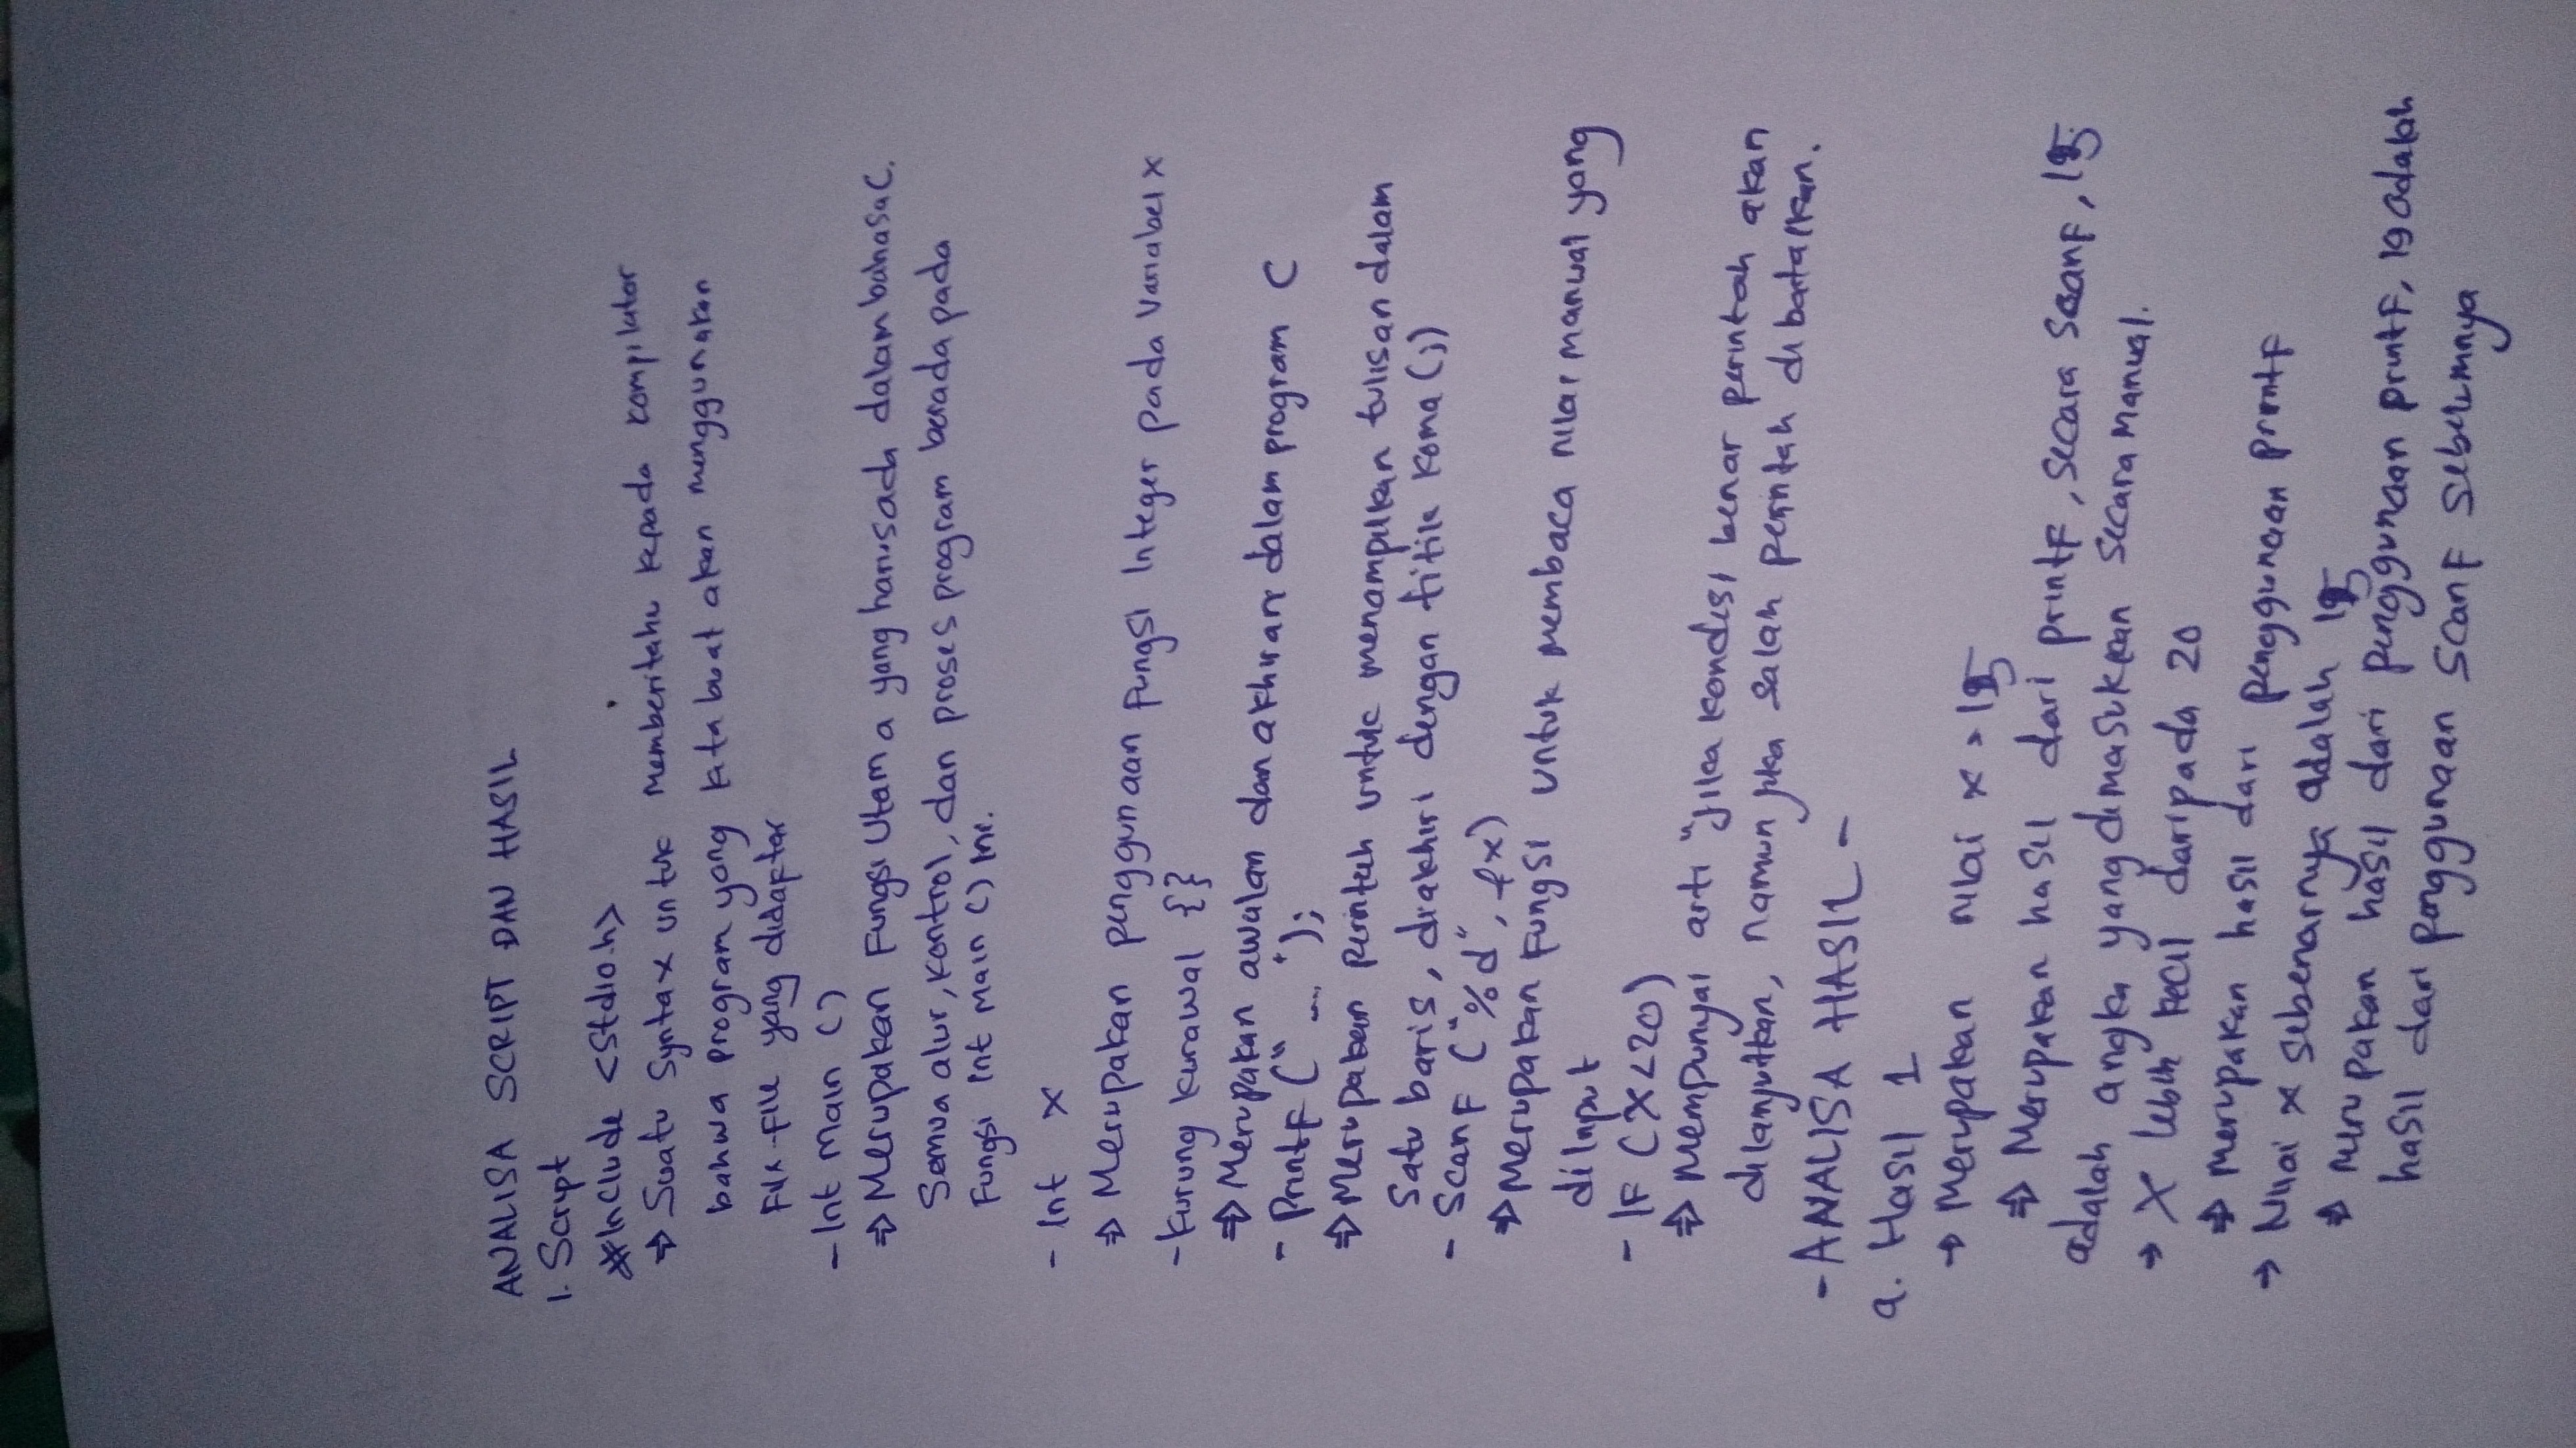 ANALISA SCRIPT DAN HASIL
1. Script
#Include <stdio.h>
⇒ Suatu syntax untuk memberitahu kepada kompilator
bahwa program yang kita buat akan menggunakan
File-File yang didaftar
- Int main ()
⇒ Merupakan Fungsi Utama yang harus ada dalam bahasa C.
Semua alur, kontrol, dan proses program berada pada
Fungsi int main () ini.
- Int x
⇒ Merupakan penggunaan Fungsi Integer pada variabel x
- Kurung kurawal {}
⇒ Merupakan awalan dan akhiran dalam program C
- PrintF ("....");
⇒ Merupakan perintah untuk menampilkan tulisan dalam
satu baris, diakhiri dengan titik koma (;)
- ScanF ("%d", &x)
⇒ Merupakan Fungsi untuk membaca nilai manual yang
diinput
- IF (X<20)
⇒ Mempunyai arti "Jika kondisi benar perintah akan
dilanjutkan, namun jika salah perintah dibatalkan.
- ANALISA HASIL -
a. Hasil 1
→ Merupakan nilai x = 15
⇒ Merupakan hasil dari printF, secara ScanF, 15
adalah angka yang dimasukkan secara manual.
→ X lebih kecil daripada 20
⇒ Merupakan hasil dari penggunaan printF
→ Nilai x sebenarnya adalah 15
⇒ Merupakan hasil dari penggunaan printF, 19 adalah
hasil dari penggunaan ScanF sebelumnya